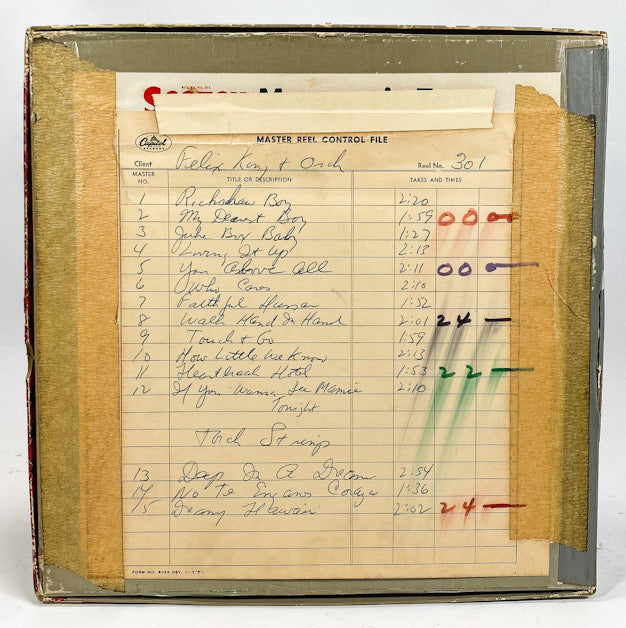 Scotch
Capitol
RECORDS
MASTER REEL CONTROL FILE
Client Felix King & Orch Reel No. 301
MASTER NO. TITLE OR DESCRIPTION TAKES AND TIMES
1 Rickshaw Boy 2:20
2 My Dearest Boy 1:59 00
3 Juke Box Baby 1:27
4 Living It Up 2:13
5 You Above All 2:11 00
6 Who Cares 2:10
7 Faithful Hussar 1:52
8 Walk Hand In Hand 2:01 24 —
9 Touch & Go 1:59
10 How Little We Know 2:13
11 Heartbreak Hotel 1:53 22 —
12 If You Wanna See Mamie 2:10
Tonight
Torch Strings
13 Day In A Dream 2:54
14 No Te Enganes 1:36
15 Hawaii 2:02 24 —
FORM NO.